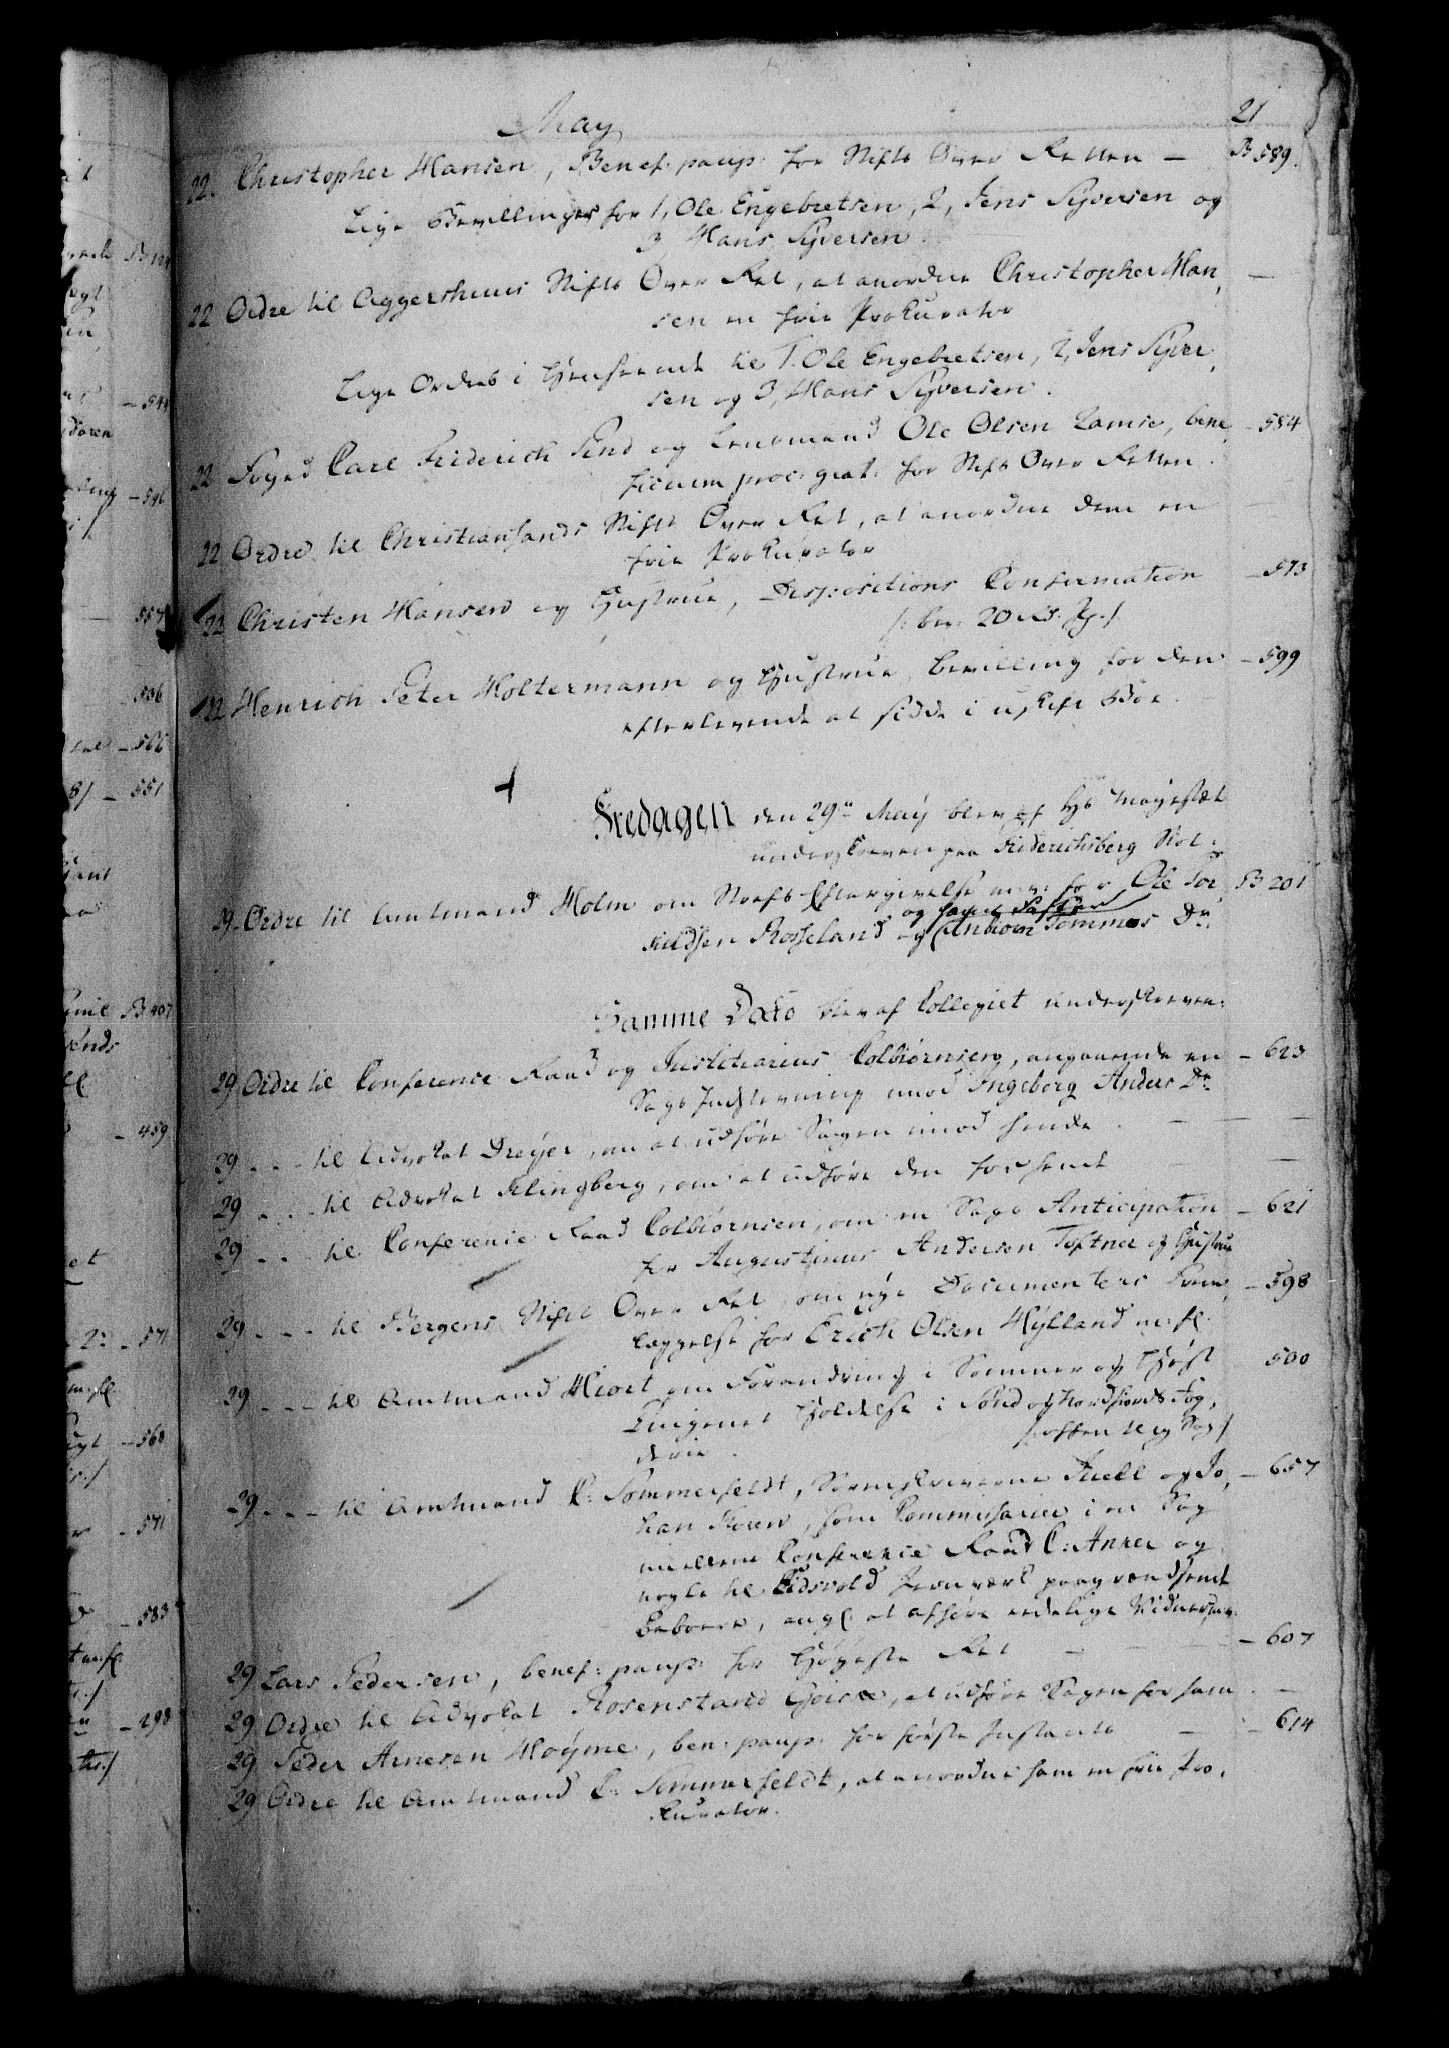 May
21
22. Christopher Hansen, Benef: paup: for Stifts Over Retten — B 589.
Lige Bevillinger for 1, Ole Engebretsen, 2, Jens Syversen og
3, Hans Syversen
22 Ordre til Aggershuus Stifts Over Ret, at anordne Christopher Han, —
sen en frie Prokurator
Lige Ordres i Henseende til 1. Ole Engebretsen, 2, Jens Syver,
sen og 3, Hans Syversen.
22 Foged Carl Friderich Sind og Lensmand Ole Olsen Lamse, bene, — 584
ficium proc: grat: for Stifts Over Retten.
22 Ordre til Christiansands Stifts Over Ret, at anordne dem en —
frie Prokurator
22 Christen Hansen og Hustrue, Dispositions Confirmation — 573
/: ber: 20 Rd. :/
22 Henrich Peter Holtermann og Hustrue, bevilling for den — 599
efterlevende at sidde i uskift Boe.
Fredagen den 29de May blev af Hs Mayestæt
underskreven paa Friderichsberg Slot:
29 Ordre til Amtmand Holm om Straffs Eftergivelse m: v: for Ole Tor, B 201
kildsen Rosseland og Anbiorn Tommas Dr.
Samme Dato blev af Collegiet underskreven:
29 Ordre til Conference Raad og Justitiarius Colbiørnsen, angaaende en — 623
Sags Indstevning imod Ingeborg Anders Dr.
29 . . . til Advokat Dreyer, om at udføre Sagen imod hende . — —
29 . . . til Advokat Klingberg, om at udføre den for hende — —
29 . . . til Conference Raad Colbiørnsen, om en Sags Anticipation — 621
for Augustinus Andersen Toftner og Hustrue
29 . . . til Bergens Stifts Over Ret, om nye Documenters Frem, — 598
læggelse for Erich Olsen Hylland m: fl.
29 . . . til Amtmand Hiort om Forandring i Sommer og Høst 500
Tingenes Holdelse i Sønd og Nordfiords Fog,
derie.
29 . . . til Amtmand C: Sommerfeldt, Sorenskriverne Juell og Jo, — 657
han Koren, som Commissarier i en Sag
imellem Conference Raad C: Anker og
nogle til Eidsvold Jernværk paagrændsende
Beboere, ang: at afhøre endelige Vidner
29 Lars Pedersen, benef: paup: for Høyeste Ret — — 607
29 Ordre til Advokat Rosenstand Goiske, at udføre Sagen for ham —
29 Peder Arnesen Høyme, ben: paup: for første Instants — 614
29 Ordre til Amtmand C: Sommerfeldt, at anordne ham en frie Pro,
kurator.